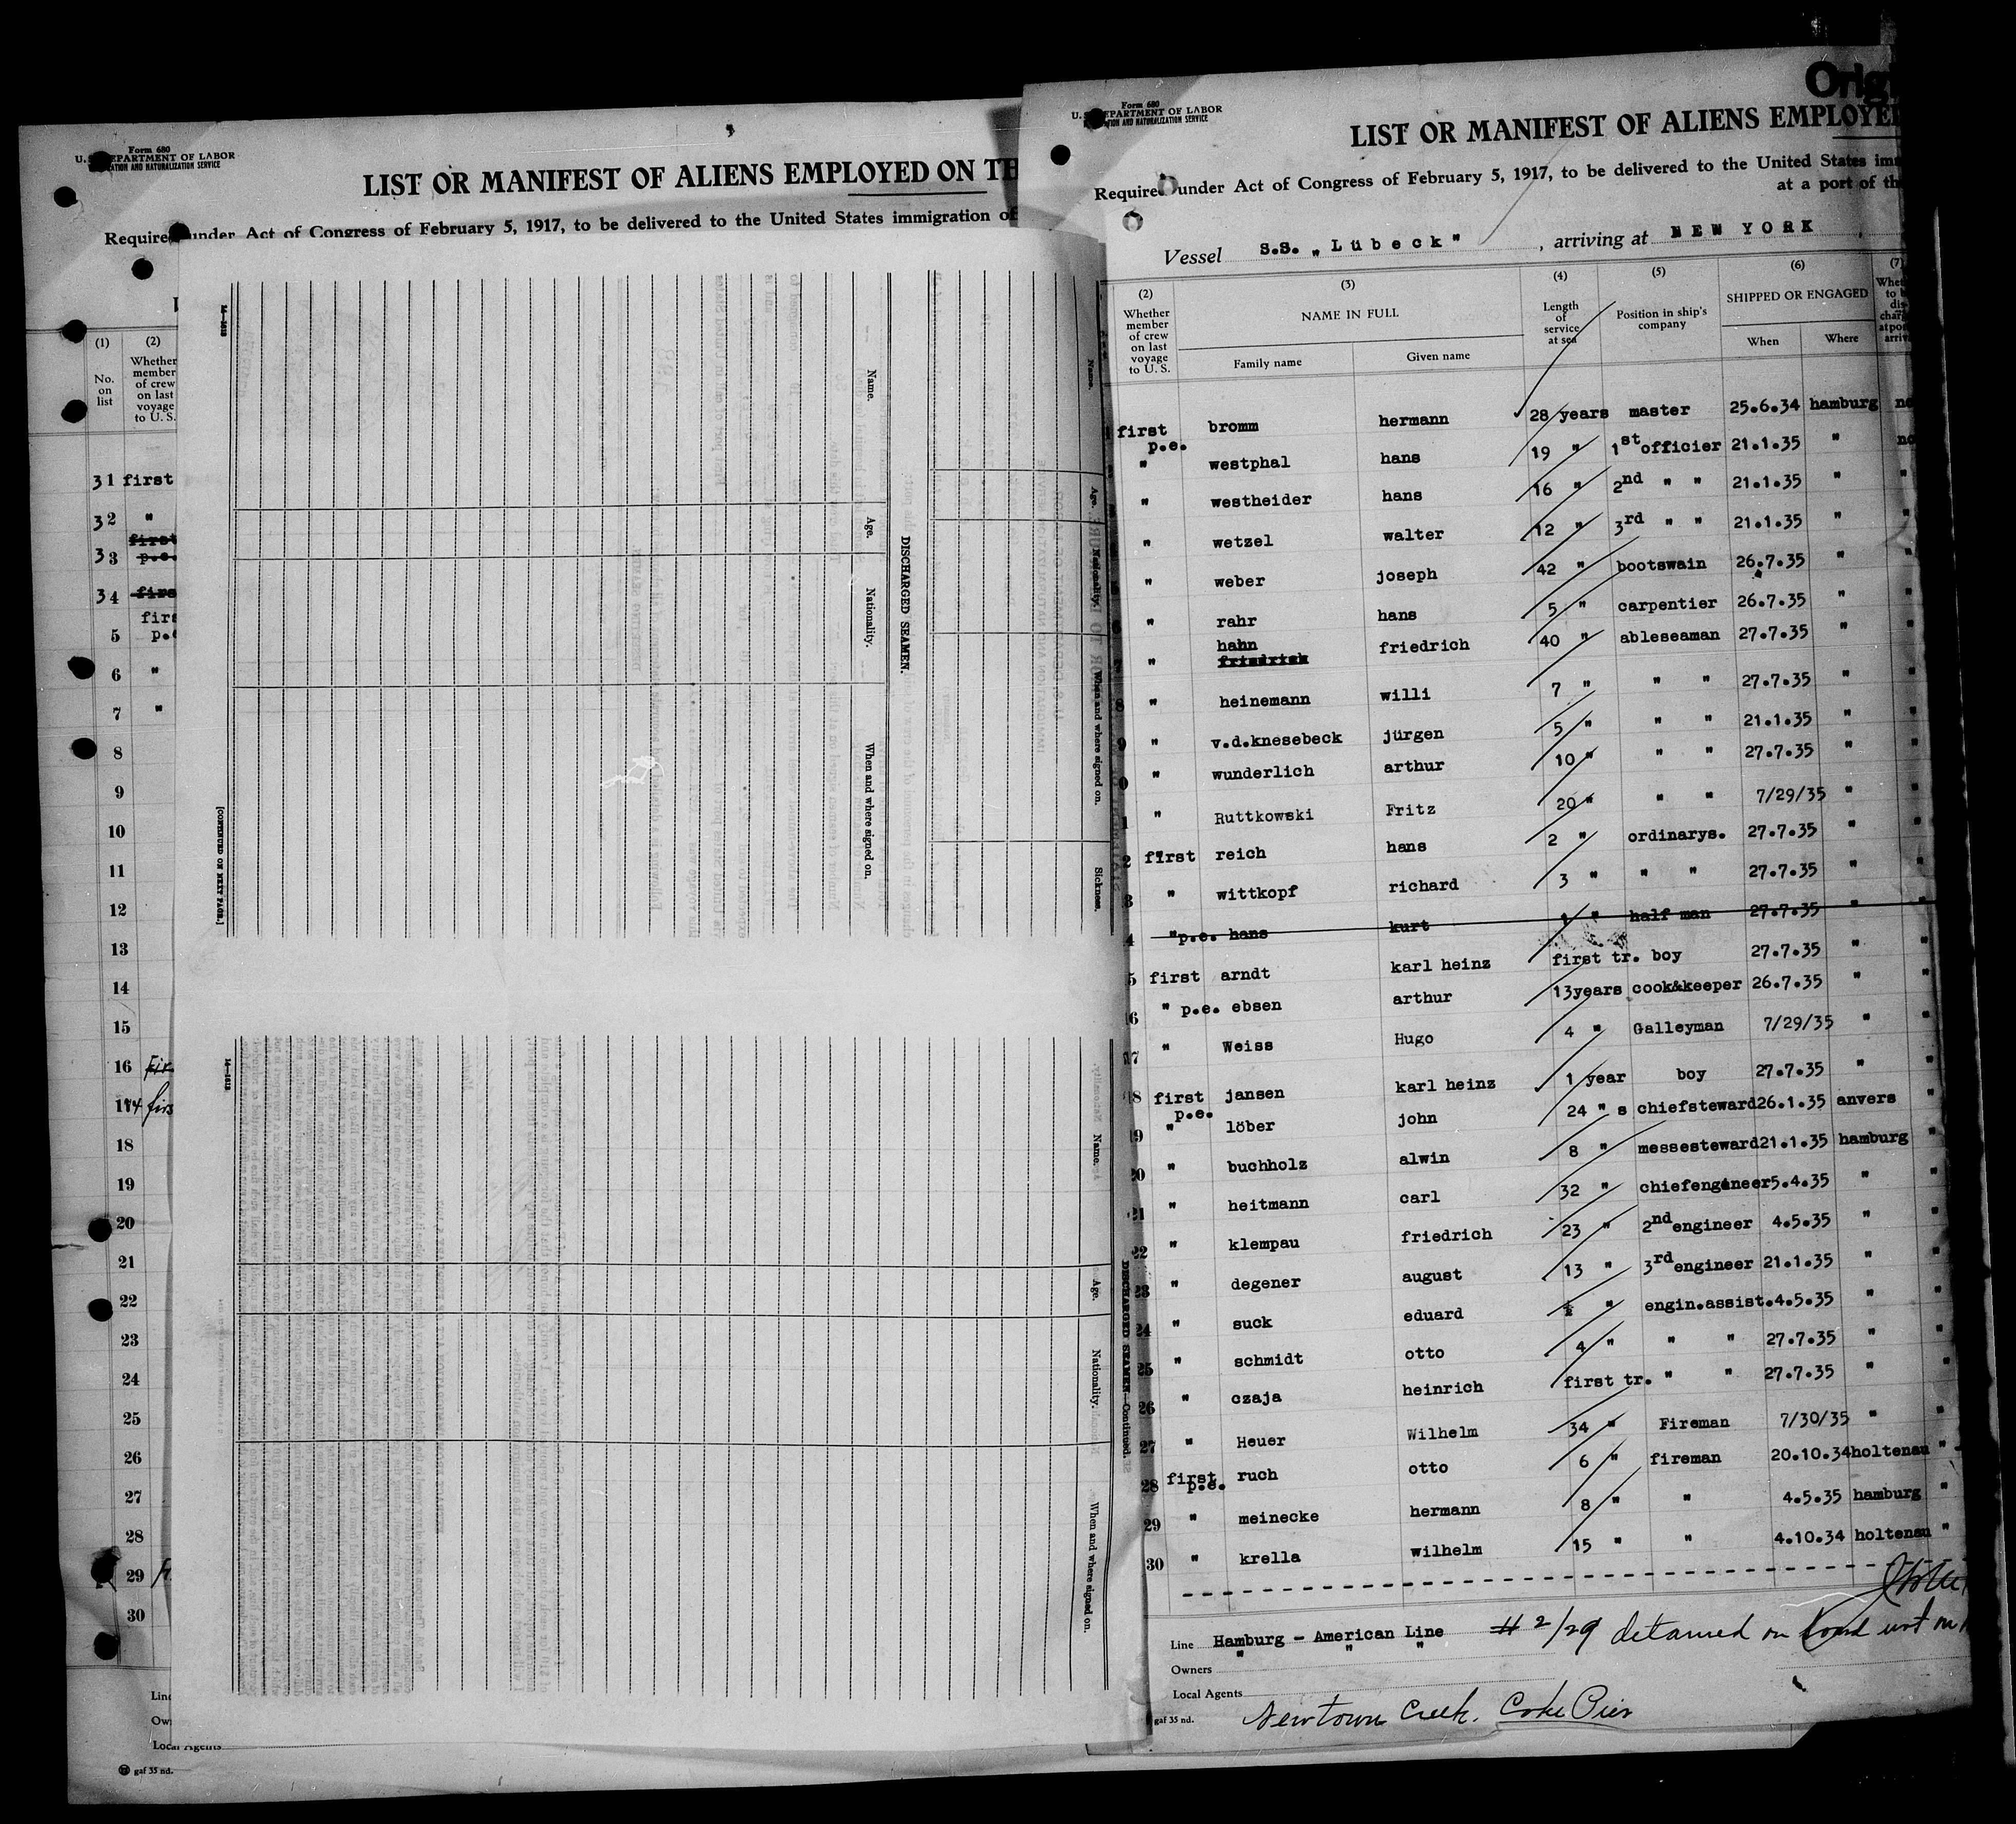 Form 680
U. S. DEPARTMENT OF LABOR
IMMIGRATION AND NATURALIZATION SERVICE
LIST OR MANIFEST OF ALIENS EMPLOYED ON TH
Required under Act of Congress of February 5, 1917, to be delivered to the United States immigration of
(1) (2)
No. on list
Whether member of crew on last voyage to U. S.
31 first
32 "
33 first p.e.
34 firs
5 firs p.e
6 "
7 "
8
9
10
11
12
13
14
15
16 Fir
17 firs
18
19
20
21
22
23
24
25
26
27
28
29
30
Line
Own
Local Agents
gaf 35 nd.
14—1613
[CONTINUED ON NEXT PAGE.]
DISCHARGED SEAMEN.
Name. Age. Nationality. When and where signed on.
Name. Age. Nationality. When and where signed on. Sickness.
14—1613
DISCHARGED SEAMEN—Continued.
Name. Age. Nationality. When and where signed on.
Origi
Form 680
U. S. DEPARTMENT OF LABOR
IMMIGRATION AND NATURALIZATION SERVICE
LIST OR MANIFEST OF ALIENS EMPLOYED
Required under Act of Congress of February 5, 1917, to be delivered to the United States imm
at a port of th
Vessel S.S. „Lübeck" , arriving at NEW YORK ,
(2) (3) (4) (5) (6) (7)
Whether member of crew on last voyage to U. S.
NAME IN FULL
Family name Given name
Length of service at sea
Position in ship's company
SHIPPED OR ENGAGED
When Where
first p.e. bromm hermann 28 years master 25.6.34 hamburg no
" westphal hans 19 " 1st officier 21.1.35 " no
" westheider hans 16 " 2nd " " 21.1.35 " "
" wetzel walter 12 " 3rd " " 21.1.35 " "
" weber joseph 42 " bootswain 26.7.35 " "
6 " rahr hans 5 " carpentier 26.7.35 " "
7 " hahn friedrich friedrich 40 " ableseaman 27.7.35 " "
8 " heinemann willi 7 " " " 27.7.35 " "
9 " v.d.knesebeck jürgen 5 " " " 21.1.35 " "
0 " wunderlich arthur 10 " " " 27.7.35 " "
1 " Ruttkowski Fritz 20 " " " 7/29/35 " "
2 first reich hans 2 " ordinarys. 27.7.35 " "
3 " wittkopf richard 3 " " " 27.7.35 " "
4 " p.e. hans kurt 1 " half man 27.7.35 " "
5 first arndt karl heinz first tr. boy 27.7.35 " "
6 " p.e. ebsen arthur 13years cook&keeper 26.7.35 " "
17 " Weiss Hugo 4 " Galleyman 7/29/35 " "
18 first jansen karl heinz 1 year boy 27.7.35 " "
19 p.e. " löber john 24 " s chiefsteward 26.1.35 anvers "
20 " buchholz alwin 8 " messesteward 21.1.35 hamburg "
21 " heitmann carl 32 " chiefengineer 5.4.35 " "
22 " klempau friedrich 23 " 2nd engineer 4.5.35 " "
23 " degener august 13 " 3rd engineer 21.1.35 " "
24 " suck eduard " engin.assist. 4.5.35 " "
25 " schmidt otto 4 " " " 27.7.35 " "
26 " czaja heinrich first tr. " " 27.7.35 " "
27 " Heuer Wilhelm 34 " Fireman 7/30/35 " "
28 first p.e. ruch otto 6 " fireman 20.10.34 holtenau "
29 " meinecke hermann 8 " " 4.5.35 hamburg "
30 " krella wilhelm 15 " " 4.10.34 holtenau "
Line Hamburg - American Line # 2/29 detained on board
Owners " " "
Local Agents
gaf 35 nd. Newtown Creek. Coke Pier